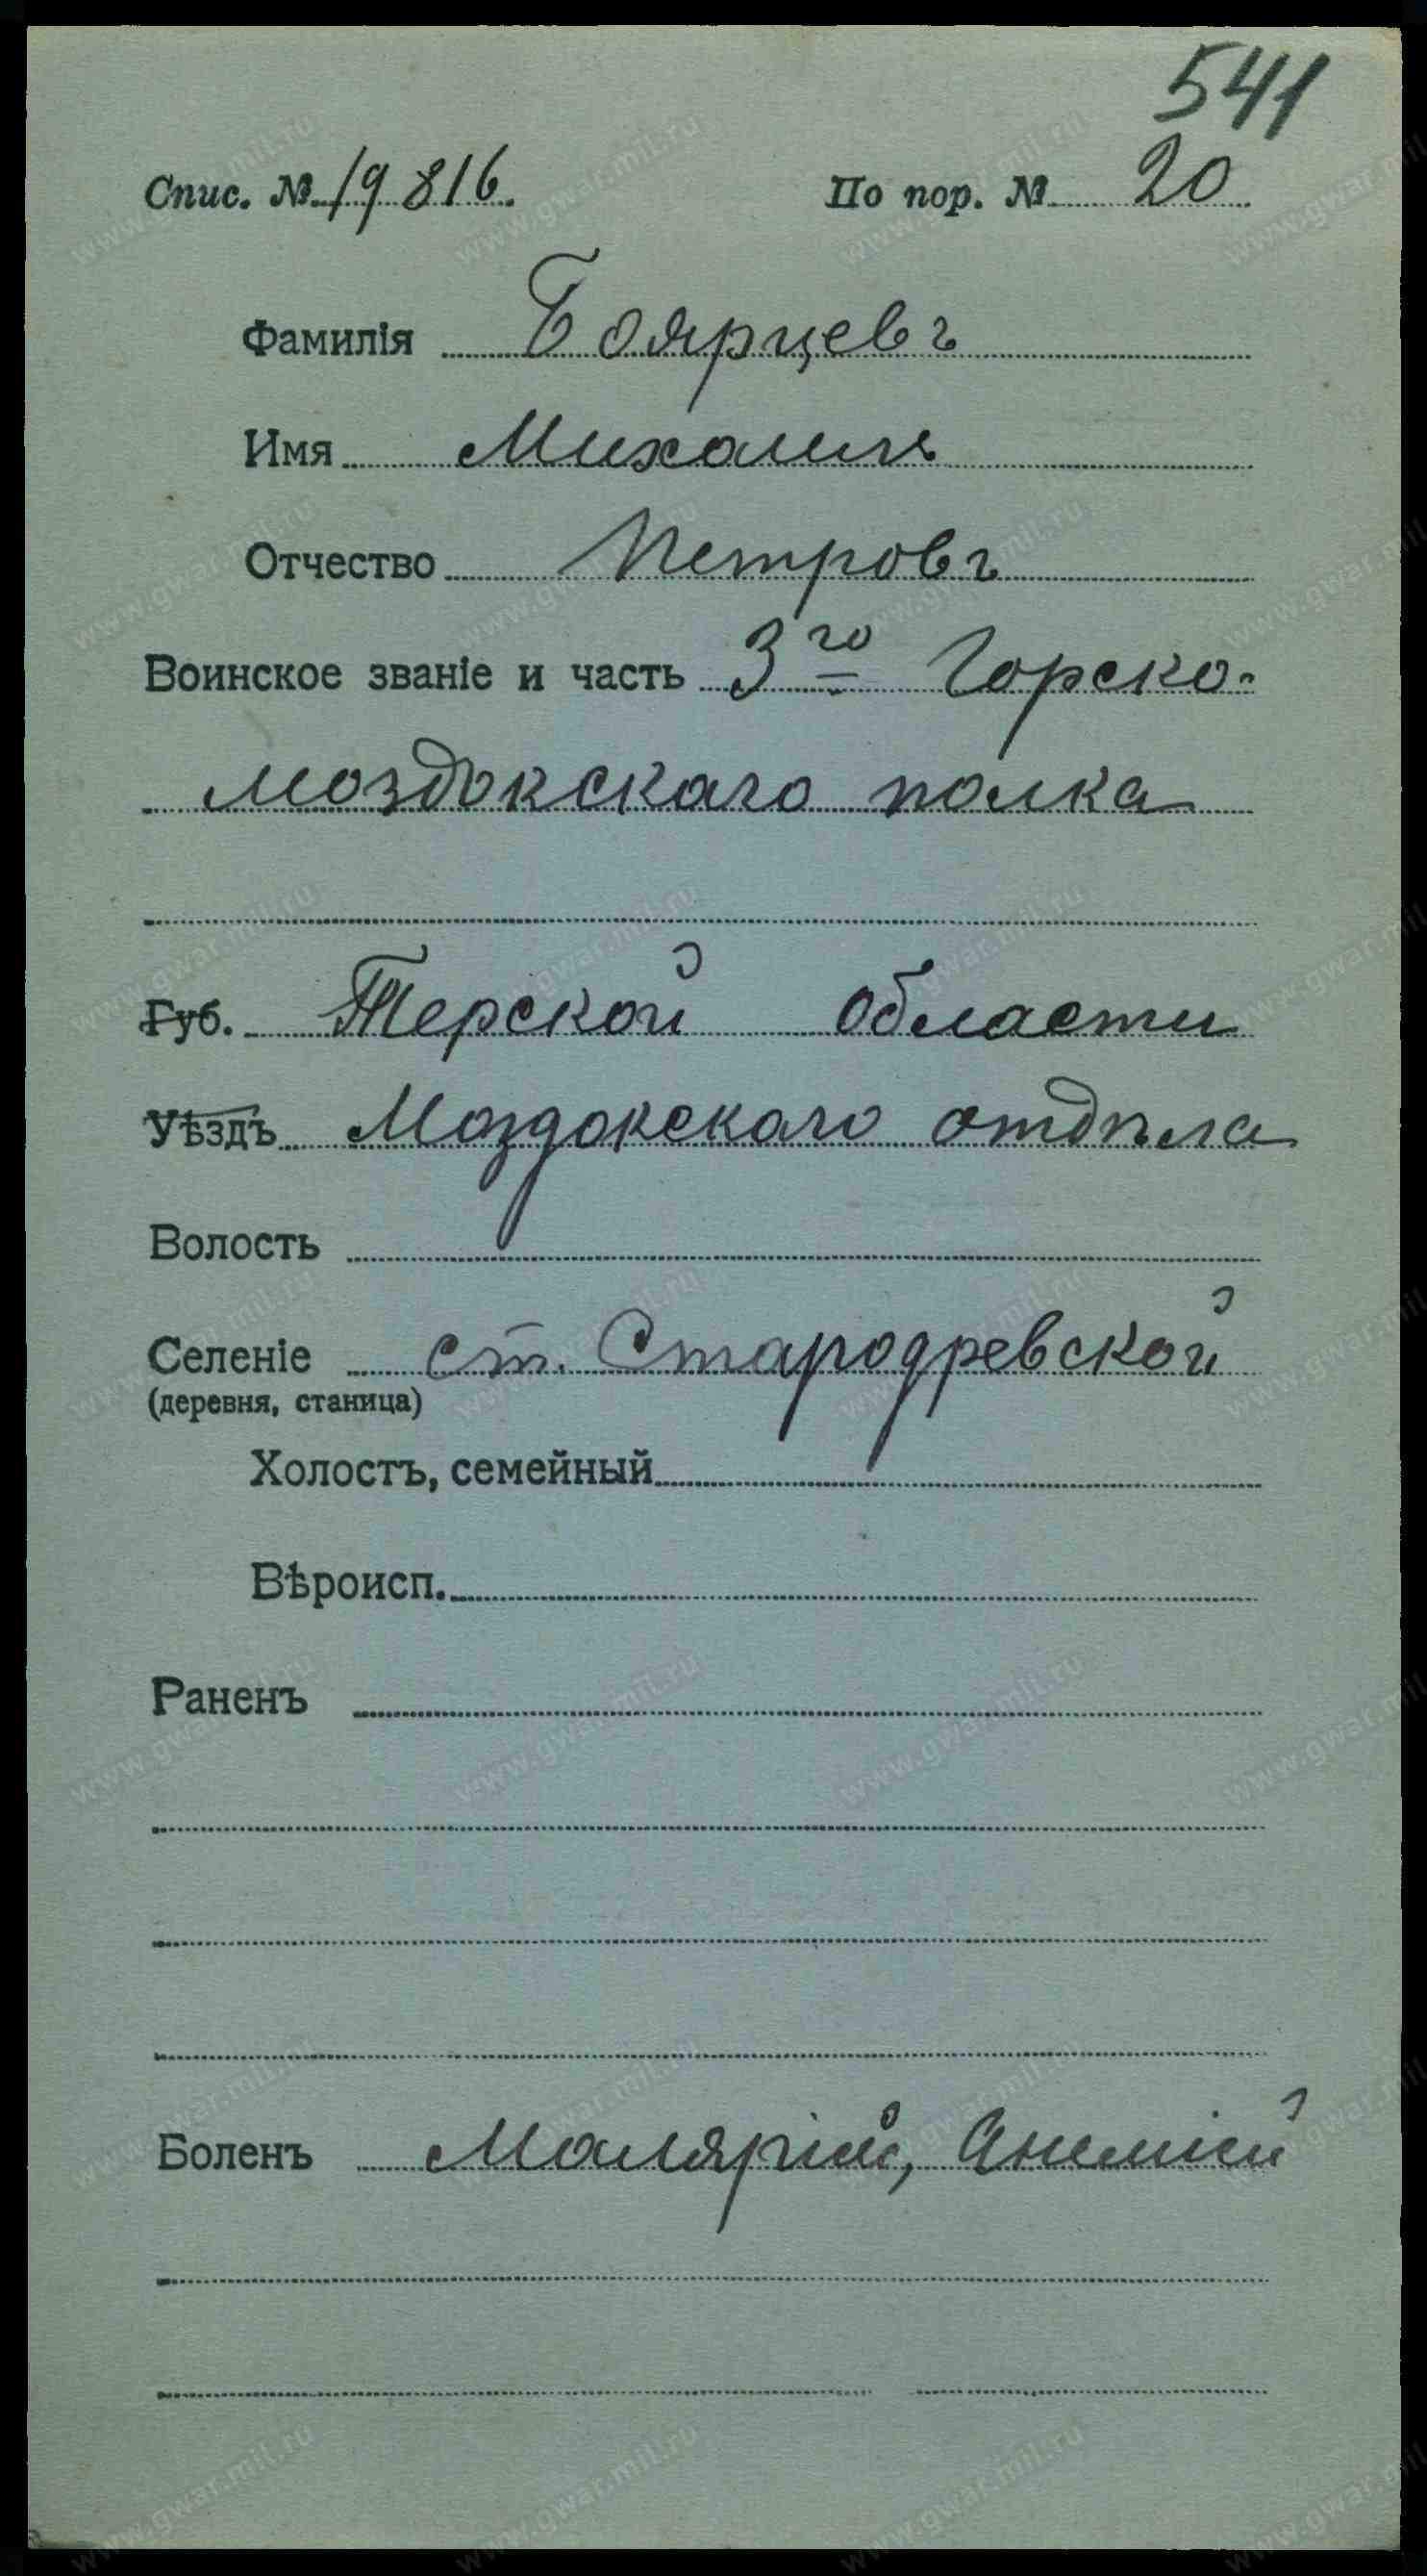 541
Спис. № 19816. По пор. № 20
Фамилія Боярцевъ
Имя Михаилъ
Отчество Петровъ
Воинское званіе и часть 3го Горско-
моздокскаго полка
Губ. Терской области
Уѣздъ Моздокскаго отдѣла
Волость
Селеніе ст. Стародревской
(деревня, станица)
Холостъ, семейный
Вѣроисп.
Раненъ
Боленъ Маляріей, Анеміей
www.gwar.mil.ru